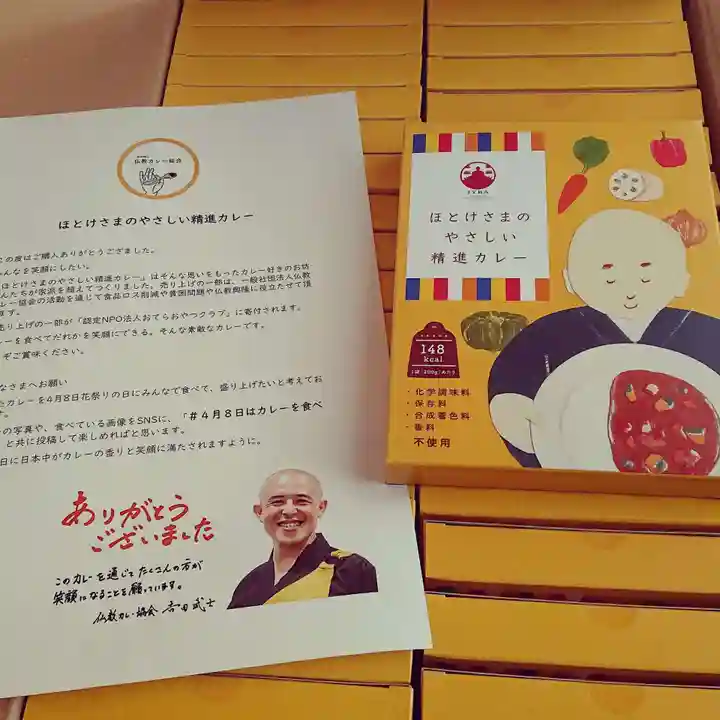 仏教カレー協会
ほとけさまのやさしい精進カレー
の度はご購入ありがとうございました。
んなを笑顔にしたい。
ほとけさまのやさしい精進カレー」はそんな思いをもったカレー好きのお坊
んたちが宗派を越えてつくりました。売り上げの一部は、一般社団法人仏教
レー協会の活動を通じて食品ロス削減や貧困問題や仏教興隆に役立たせて頂
ます。
売り上げの一部が「認定NPO法人おてらおやつクラブ」に寄付されます。
ーを食べてだれかを笑顔にできる。そんな素敵なカレーです。
ぞご賞味ください。
なさまへお願い
たカレーを4月8日花祭りの日にみんなで食べて、盛り上げたいと考えてお
。
の写真や、食べている画像をSNSに、「#4月8日はカレーを食べ
」と共に投稿して楽しめればと思います。
日に日本中がカレーの香りと笑顔に満たされますように。
ありがとう
ございました
このカレーを通じてたくさんの方が
笑顔になることを願っています。
仏教カレー協会 吉田武士
JYBA
ほとけさまの
やさしい
精進カレー
148
kcal
1袋(200g)あたり
・化学調味料
・保存料
・合成着色料
・香料
不使用